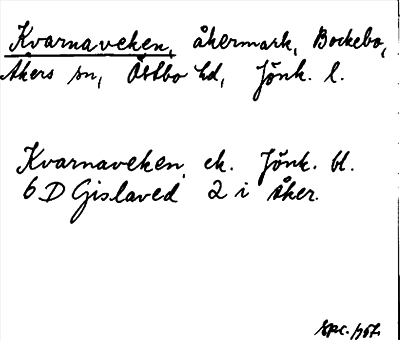 Kvarnaveken, åkermark, Bockebo,
Åkers sn, Östbo hd, Jönk. l.
Kvarnaveken, ek. Jönk. bl.
6 D Gislaved 2 i Åker.